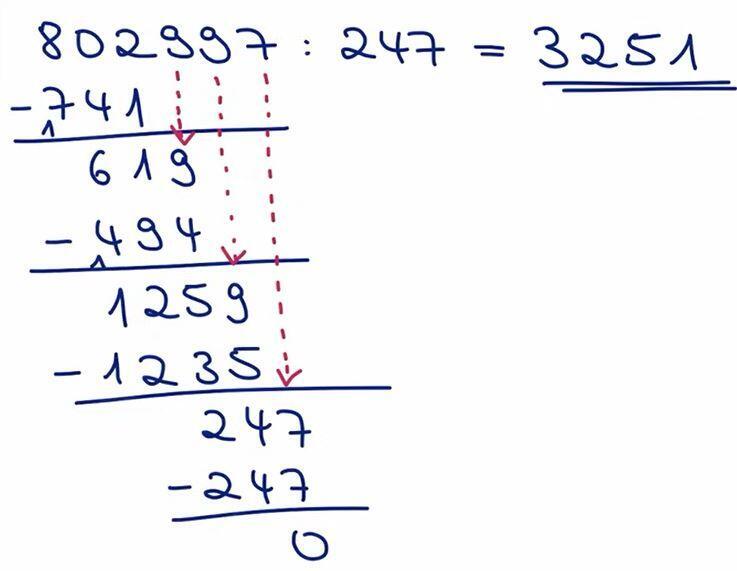 802997 : 247 = 3251
-741
1
619
-494
1
1259
-1235
247
-247
0